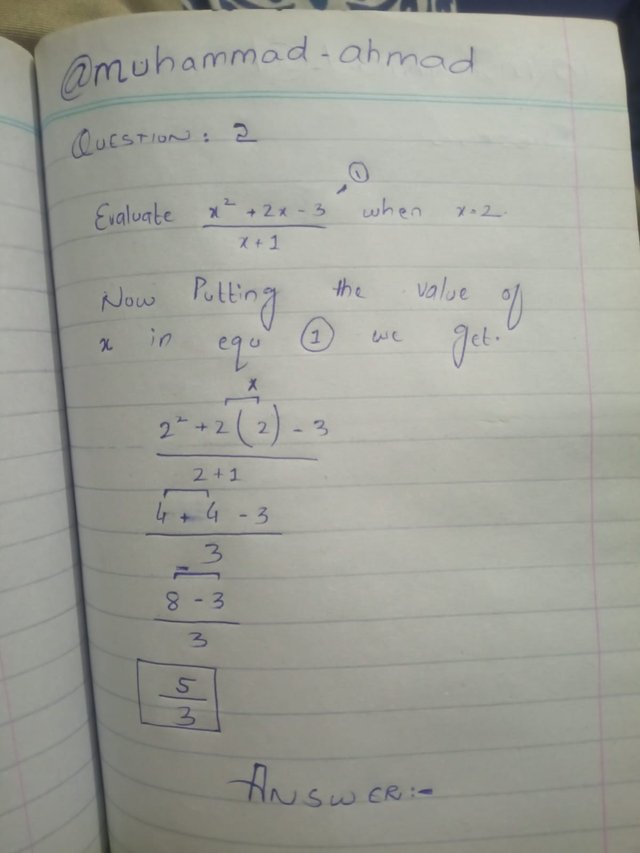 @muhammad-ahmad
QUESTION: 2
①
Evaluate x² + 2x - 3 when x=2.
x + 1
Now Putting the value of
x in equ ① we get.
x
2² + 2(2) - 3
2 + 1
4 + 4 - 3
3
8 - 3
3
5
3
ANSWER:-